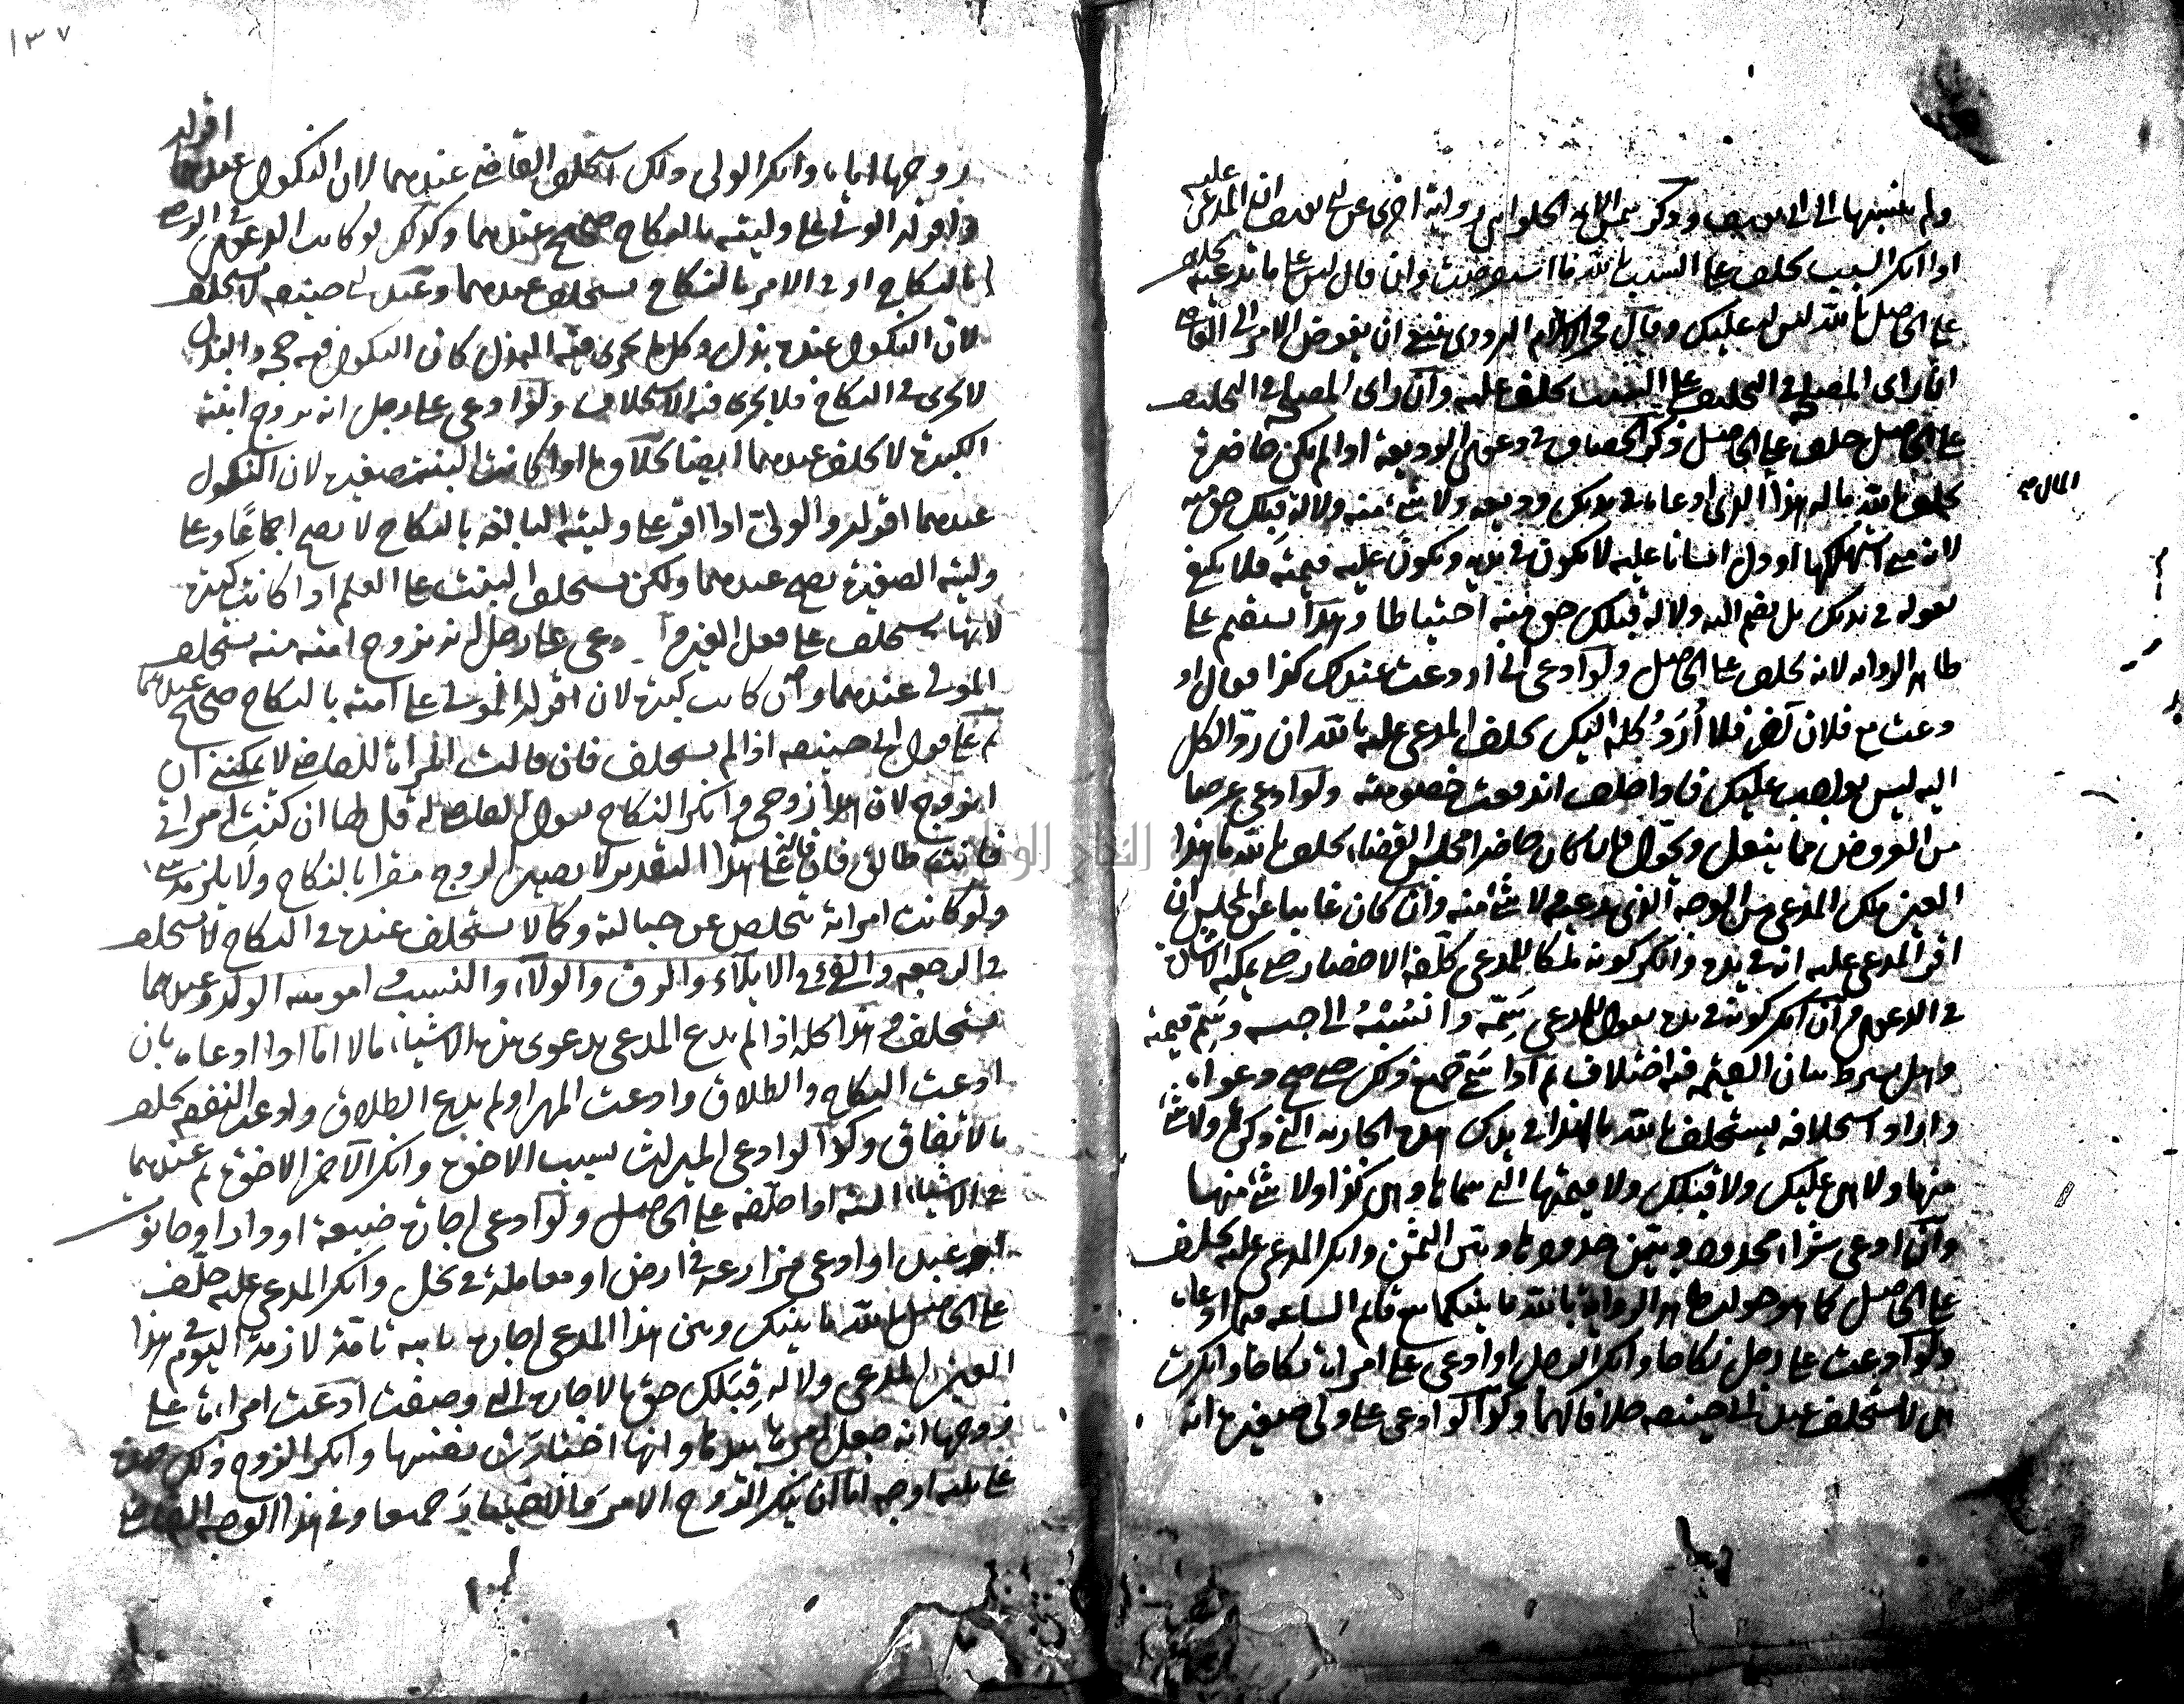 ولم ينسبها الى ابي يوسف وذكر شمس الائمة الحلواني رواية اخرى عن ابي يوسف ان المدعى عليه
اذا انكر السبب يحلف على السبب بالله ما استقرضت وان قال ليس علي ما تدعيه يحلف
على الحاصل بالله ليس له عليك وقال فخر الاسلام البزدوي ينبغي ان يفوض الامر الى القاضي
ان راى المصلحة في التحليف على السبب يحلف عليه وان راى المصلحة في التحليف
على الحاصل حلف على الحاصل ذكر الخصاف في دعوى الوديعة اذا لم تكن حاضرة
يحلف بالله ما له هذا الذي ادعاه في يديك وديعة ولا شئ منه ولا له قبلك حق منه
المال
لانه متى استهلكها او دل انسانا عليه لا تكون في يديه ويكون عليه قيمته فلا يكتفى
بقوله في يديك بل يضم اليه ولا له قبلك حق منه احتياطا وهذا يستقيم على
ظاهر الرواية لانه يحلف على الحاصل ولو ادعى اني اودعت عندك كذا فقال او
دعت مع فلان آخر فلا أردُّ كله اليك يحلف المدعى عليه بالله ان رد الكل
اليه ليس بواجب عليك فاذا حلف اندفعت خصومته ولو ادعى عرضا
من العروض مما ينقل ويحول فان كان حاضرا مجلس القضاء يحلف بالله ما هذا
العين ملك المدعي من الوجه الذي يدعيه ولا شئ منه وان كان غايبا عن المجلس ان
اقر المدعى عليه انه في يده وانكر كونه ملكا للمدعي كلّفه الاحضار حتى يمكنه الاشارة
في الدعوى وان انكر كونه في يده يقول للمدعي سَمّه وانسُبْهُ الى جنسه وسَمّ قيمته
وهل يشرط بيان القيمة فيه اختلاف ثم اذا سمى جميع ذلك حتى صح دعواه
واراد استحلافه يستحلف بالله ما لهذا في يدك هذه الجارية التي ذكرها ولا شئ
منها ولا هي عليك ولا قبلك ولا قيمتها التي سماها وهي كذا ولا شئ منها
وان ادعى شراء محدود وبين حدودها وبين الثمن وانكر المدعى عليه يحلف
على الحاصل كما هو جواب ظاهر الرواية بالله ما بينكما بيع قائم الساعة فيما ادعاه
ولو ادعت على رجل نكاحا وانكر الرجل او ادعى على امراة نكاحا وانكرت
هي لا تستحلف عند ابي حنيفة خلافا لهما وكذا لو ادعى على ولي صغيرة انه
١٣٧
زوجها اياه وانكر الولي ولكن استحلف القاضي عندهما لان النكول عندهما اقرار
واقرار الولي على وليته بالنكاح صحيح عندهما وكذلك لو كانت الدعوى في الرضى
بالنكاح او في الامر بالنكاح يستحلف عندهما وعند ابي حنيفة لا يحلف
لان النكول عنده بذل وكل ما يجري فيه البذل كان النكول فيه حجة والبذل
لا يجري في النكاح فلا يجرى فيه الاستحلاف ولو ادعى على رجل انه زوج ابنته
الكبيرة لا يحلف عندهما ايضا بخلاف ما اذا كانت البنت صغيرة لان النكول
عندهما اقرار والولي اذا اقر على وليته البالغة بالنكاح لا يصح اجماعًا وعلى
وليته الصغيرة يصح عندهما ولكن تستحلف البنت على العلم اذا كانت كبيرة
لانها تستحلف على فعل الغير ادعى على رجل انه زوج امته منه يستحلف
المولى عندهما وان كانت كبيرة لان اقرار المولى على امته بالنكاح صحيح عندهما
ثم على قول ابي حنيفة اذا لم يستحلف فان قالت المراة للقاضي لا يمكنني ان
اتزوج لان هذا زوجي وانكر النكاح يقول القاضي له قل لها ان كنتِ امراتي
فانت طالق فان قال على هذا التقدير لا يصير الزوج مقرا بالنكاح ولا يلزمه شئ
ولو كانت امراته تتخلص عن حبالته وكما لا يستحلف عنده في النكاح لا يستحلف
في الرجعة والفئ في الايلاء والرق والولاء والنسب وامومية الولد وعندهما
يستحلف في هذا كله اذا لم يدع المدعي بدعوى هذه الاشياء مالا اما اذا ادعاه بان
ادعت النكاح والطلاق وادعت المهر او لم تدع الطلاق وادعت النفقة يحلف
بالاتفاق وكذا لو ادعى الميراث بسبب الاخوة وانكر الآخر الاخوة ثم عندهما
في الاشياء الستة اذا حلفه على الحاصل ولو ادعى اجارة ضيعة او دار او حانوت
او عبد او ادعى مزارعة في ارض او معاملة في نخل وانكر المدعى عليه حلف
على الحاصل بالله ما بينك وبين هذا المدعي اجارة قائمة تامة لازمة اليوم في هذا
العين المدعى ولا له قِبَلك حق بالاجارة التي وصفت ادعت امراة على
زوجها انه جعل امرها بيدها وانها اختارت نفسها وانكر الزوج ذلك فهذا
على ثلثة اوجه اما ان ينكر الزوج الامر والاختيار جميعا وفي هذا الوجه القاضي